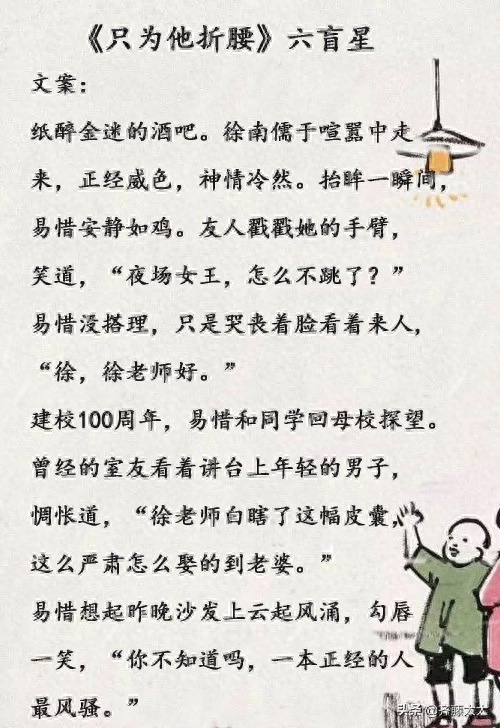 《只为他折腰》六盲星
文案：
纸醉金迷的酒吧。徐南儒于喧嚣中走
来，正经威色，神情冷然。抬眸一瞬间，
易惜安静如鸡。友人戳戳她的手臂，
笑道，“夜场女王，怎么不跳了？”
易惜没搭理，只是哭丧着脸看着来人，
“徐，徐老师好。”
建校100周年，易惜和同学回母校探望。
曾经的室友看着讲台上年轻的男子，
惆怅道，“徐老师白瞎了这幅皮囊，
这么严肃怎么娶的到老婆。”
易惜想起昨晚沙发上云起风涌，勾唇
一笑，“你不知道吗，一本正经的人
最风骚。”
头条@择藤太太